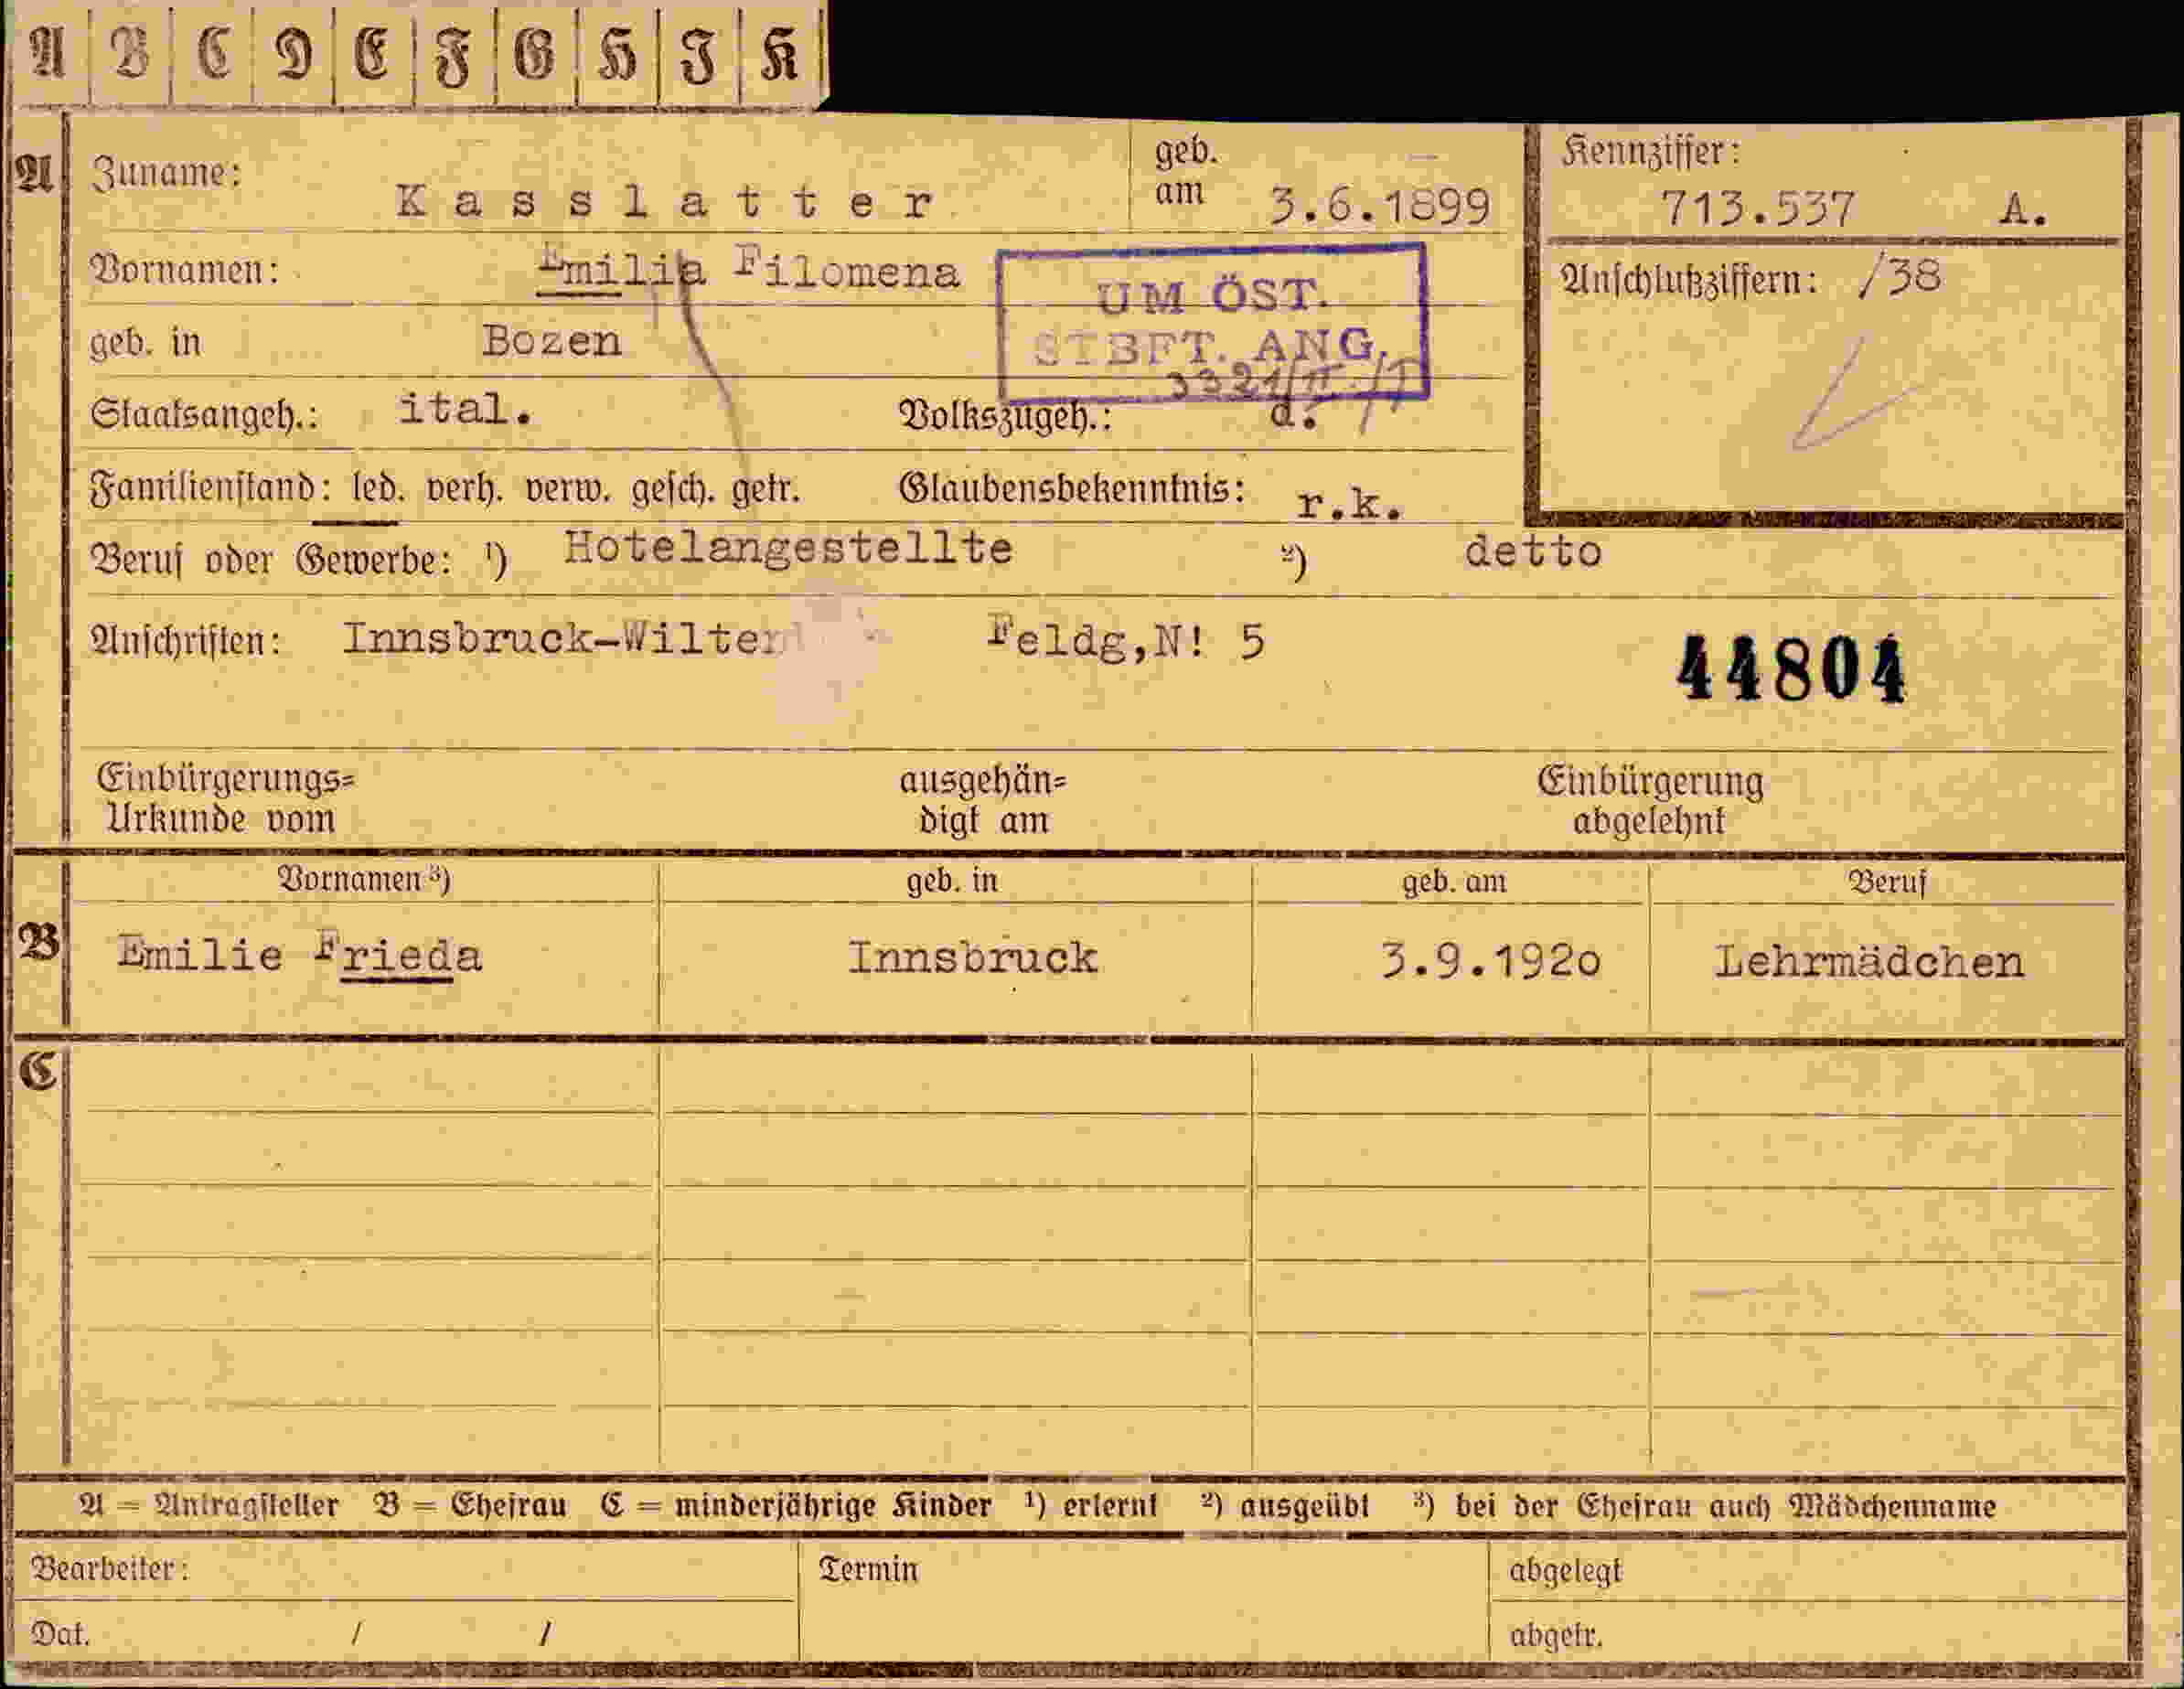 A B C D E F G H J K
A
Zuname: Kasslatter geb. am 3.6.1899
Kennziffer: 713.537 A.
Vornamen: Emilia Filomena
Anschlußziffern: /38
UM ÖST.
STBFT. ANG.
geb. in Bozen
Staatsangeh.: ital. Volkszugeh.: d.
Familienstand: led. verh. verw. gesch. getr. Glaubensbekenntnis: r.k.
Beruf oder Gewerbe: ¹) Hotelangestellte ²) detto
Anschriften: Innsbruck-Wilten Feldg,N! 5
44804
Einbürgerungs=
Urkunde vom
ausgehän=
digt am
Einbürgerung
abgelehnt
Vornamen ³) geb. in geb. am Beruf
B Emilie Frieda Innsbruck 3.9.192o Lehrmädchen
C
A = Antragsteller B = Ehefrau C = minderjährige Kinder ¹) erlernt ²) ausgeübt ³) bei der Ehefrau auch Mädchenname
Bearbeiter: Termin abgelegt
Dat. / / abgetr.